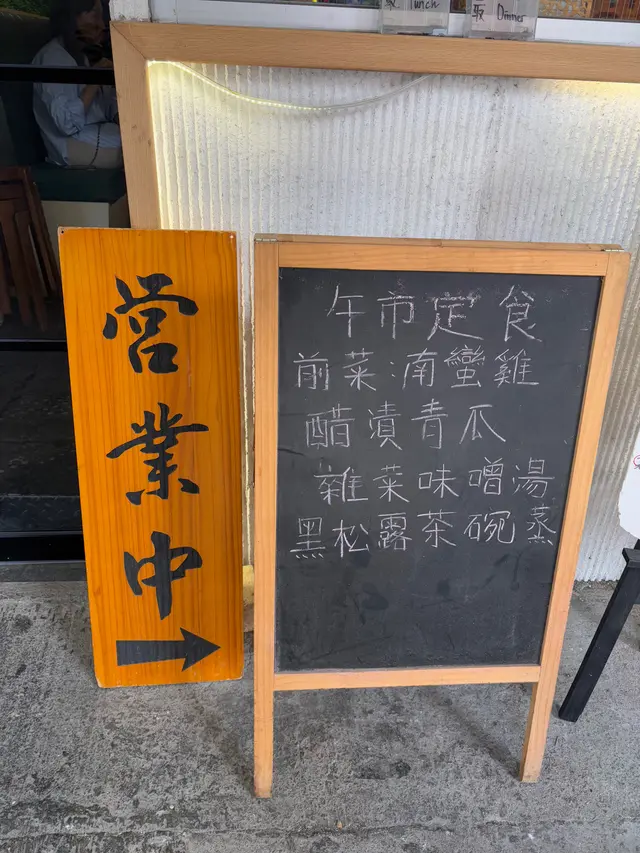 lunch
Dinner
営
業
中
午市定食
前菜:南蠻雞
醋漬青瓜
雜菜味噌湯
黑松露茶碗蒸